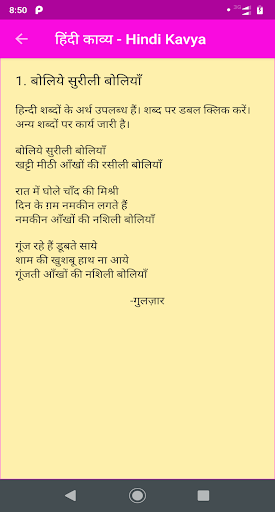 8:50
हिंदी काव्य - Hindi Kavya
1. बोलिये सुरीली बोलियाँ
हिन्दी शब्दों के अर्थ उपलब्ध हैं। शब्द पर डबल क्लिक करें।
अन्य शब्दों पर कार्य जारी है।
बोलिये सुरीली बोलियाँ
खट्टी मीठी आँखों की रसीली बोलियाँ
रात में घोले चाँद की मिश्री
दिन के ग़म नमकीन लगते हैं
नमकीन आँखों की नशिली बोलियाँ
गूंज रहे हैं डूबते साये
शाम की खुशबू हाथ ना आये
गूंजती आँखों की नशिली बोलियाँ
-गुलज़ार